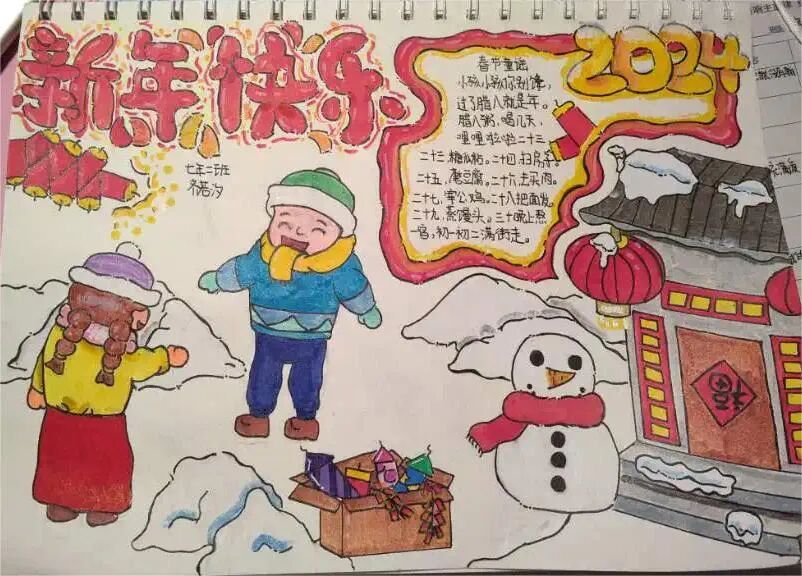 新年快乐
2024
七年二班
齐若汐
春节童谣
小孩小孩你别馋，
过了腊八就是年。
腊八粥，喝几天，
哩哩啦啦二十三。
二十三，糖瓜粘。二四扫房子。
二五，磨豆腐。二六，去买肉。
二七，宰公鸡。二八把面发。
二九，蒸馒头。三十晚上熬
一宿，初一初二满街走。
福